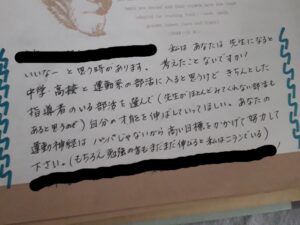 私は あなたは 先生になると
いいなーと思う時があります。 考えたことないですか!
中学・高校と運動系の部活に入ると思うけど きちんとした
指導者のいる部活を選んで(先生がほとんどみてくれない部活も
あると思うので)自分の才能を伸ばしていってほしい。あなたの
運動神経は ハンパじゃないから高い目標をかかげて努力して
下さい。(もちろん勉強の方もまだまだ伸びると私はニランでいる)